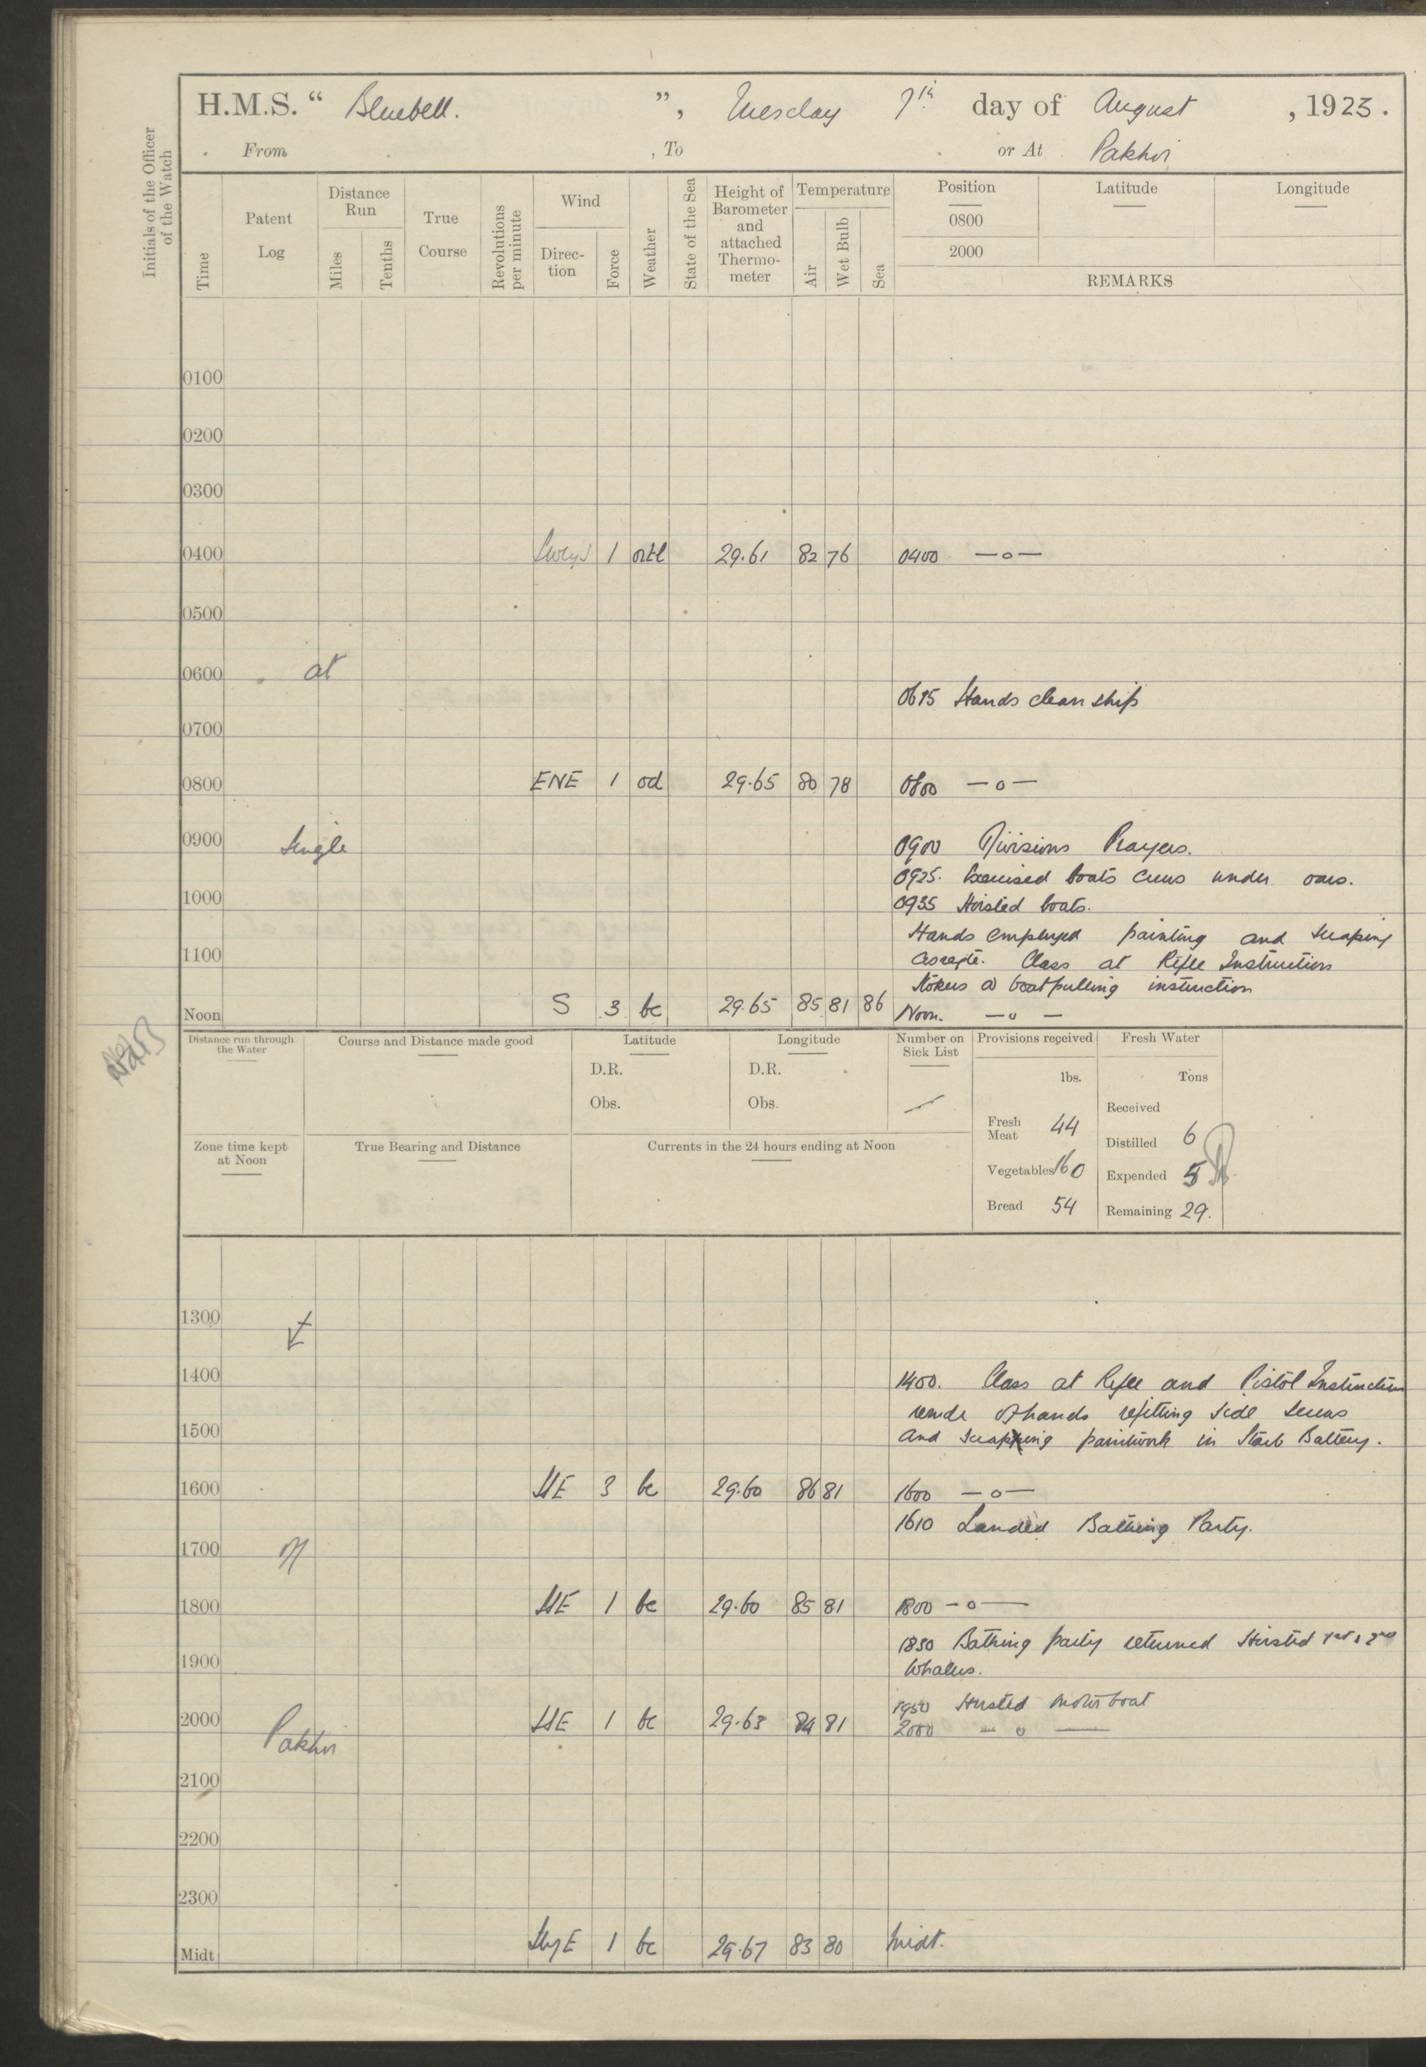 H.M.S. " Bluebell. ", Tuesday 7th day of August , 1923.
From , To or At Pakhoi
Initials of the Officer of the Watch
Time
Patent Log
Distance Run
Miles
Tenths
True Course
Revolutions per minute
Wind
Direction
Force
Weather
State of the Sea
Height of Barometer and attached Thermometer
Temperature
Air
Wet Bulb
Sea
Position Latitude Longitude
0800
2000
REMARKS
0100
0200
0300
0400 1 29.61 82 76 0400 —o—
0500
0600 at
0615 Hands clean ship
0700
0800 ENE 1 od 29.65 80 78 0800 —o—
0900 Single 0900 Divisions Prayers.
0925. Exercised boats crews under oars.
1000 0935 Hoisted boats.
Hands employed painting and scraping
1100 as reqte. Class at Rifle Instruction
Stokers @ boatpulling instruction
Noon S 3 bc 29.65 85 81 86 Noon. —o—
Distance run through the Water
Course and Distance made good
Latitude
D.R.
Obs.
Longitude
D.R.
Obs.
Number on Sick List
/
Provisions received
lbs.
Fresh Meat 44
Vegetables 160
Bread 54
Fresh Water
Tons
Received
Distilled 6
Expended 5
Remaining 29.
Zone time kept at Noon
True Bearing and Distance
Currents in the 24 hours ending at Noon
1300
1400 1400. Class at Rifle and Pistol Instruction
remdr of hands refitting side screens
1500 and scraping paintwork in Starb Battery.
1600 SSE 3 bc 29.60 86 81 1600 —o—
1610 Landed Bathing Party.
1700 off
1800 SSE 1 bc 29.60 85 81 1800 —o—
1830 Bathing party returned Hoisted 1st & 2nd
1900 Whalers.
1950 Hoisted motor boat
2000 Pakhoi SSE 1 bc 29.63 84 81 2000 —o—
2100
2200
2300
Midt SbyE 1 bc 29.67 83 80 Midt.